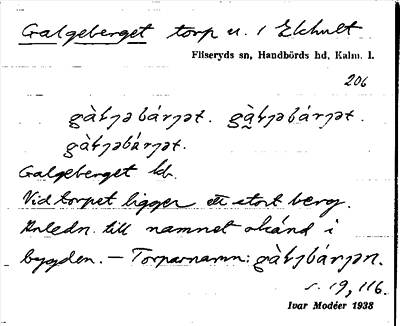 Galgeberget torp u. / Ekhult
Fliseryds sn, Handbörds hd, Kalm. l.
206
gàɫjəbárjət. gàɫjəbárjət.
gàɫjəbárjət.
Galgeberget kb.
Vid torpet ligger ett stort berg.
Anledn. till namnet okänd i
bygden. — Torparnamn: gàɫjbárjən.
s. 19, 116.
Ivar Modéer 1938